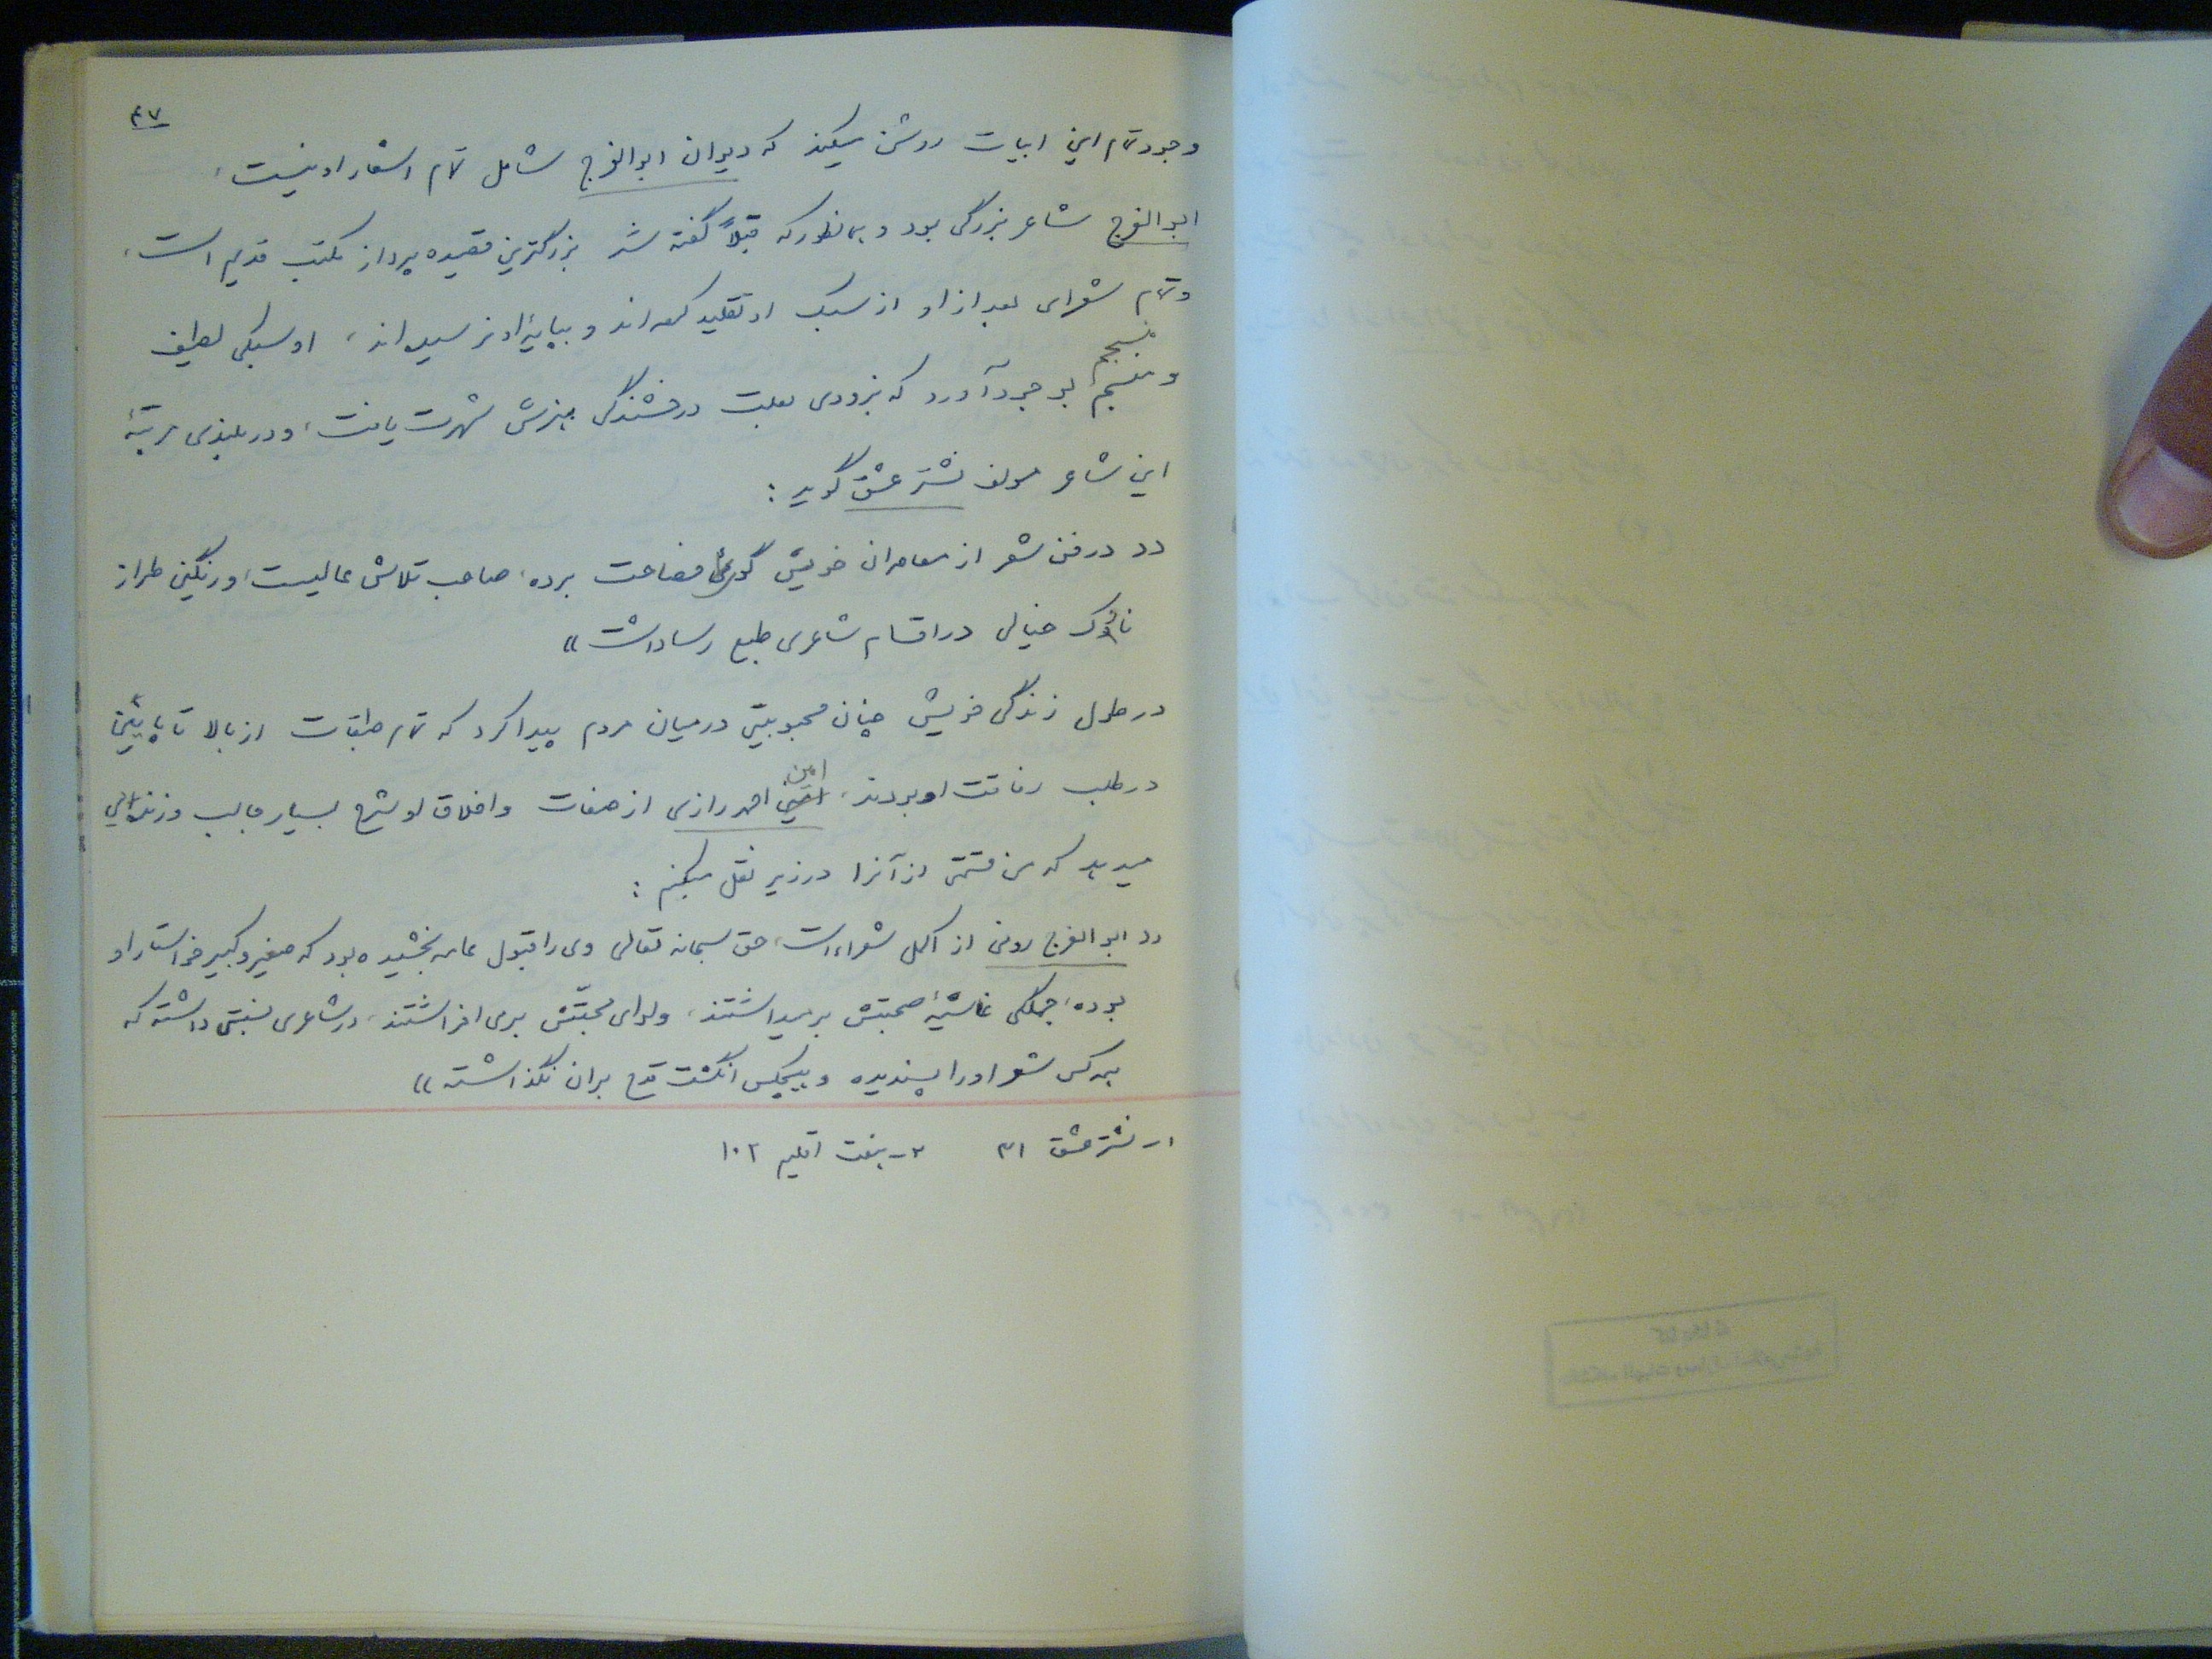 ۴۷
وجود تمام این ابیات روشن میکند که دیوان ابوالفرج شامل تمام اشعار او نیست،
ابوالفرج شاعر بزرگی بود و بهمانطور که قبلاً گفته شد بزرگترین قصیده پرداز مکتب قدیم است،
و تمام شعرای بعد از او از سبک او تقلید کرده اند و بپایهٔ او نرسیده اند، او سبکی لطیف
و منسجم بوجود آورد که بزودی بعلت درخشندگی بهنرش شهرت یافت، و در بلندی مرتبهٔ
این شاعر مولف نشتر عشق گوید :
«در فن شعر از معاصران خویش گوی فصاحت برده، صاحب تلاش عالیست، و رنگین طراز
نازک خیالی در اقسام شاعری طبع رسا داشت»
در طول زندگی خویش چنان محبوبیتی در میان مردم پیدا کرد که تمام طبقات از بالا تا پایین
در طلب رفاقت او بودند، امین احمد رازی از صفات و اخلاق او شرح بسیار جالب و زنده‌ای
میدهد که من قسمتی از آنرا در زیر نقل میکنم :
«ابوالفرج رونی از اکمل شعراء است، حق سبحانه تعالی وی را قبول عامه بخشیده بود که صغیر و کبیر خواستار او
بوده، جملگی غاشیهٔ صحبتش بر میداشتند، ولوای محبّتش بر می افراشتند، در شاعری نسبتی داشته که
همه کس شعر او را پسندیده و هیچکس انگشت قدح بران نگذاشته»
۱- نشتر عشق ۳۱ ۲- هفت اقلیم ۱۰۲